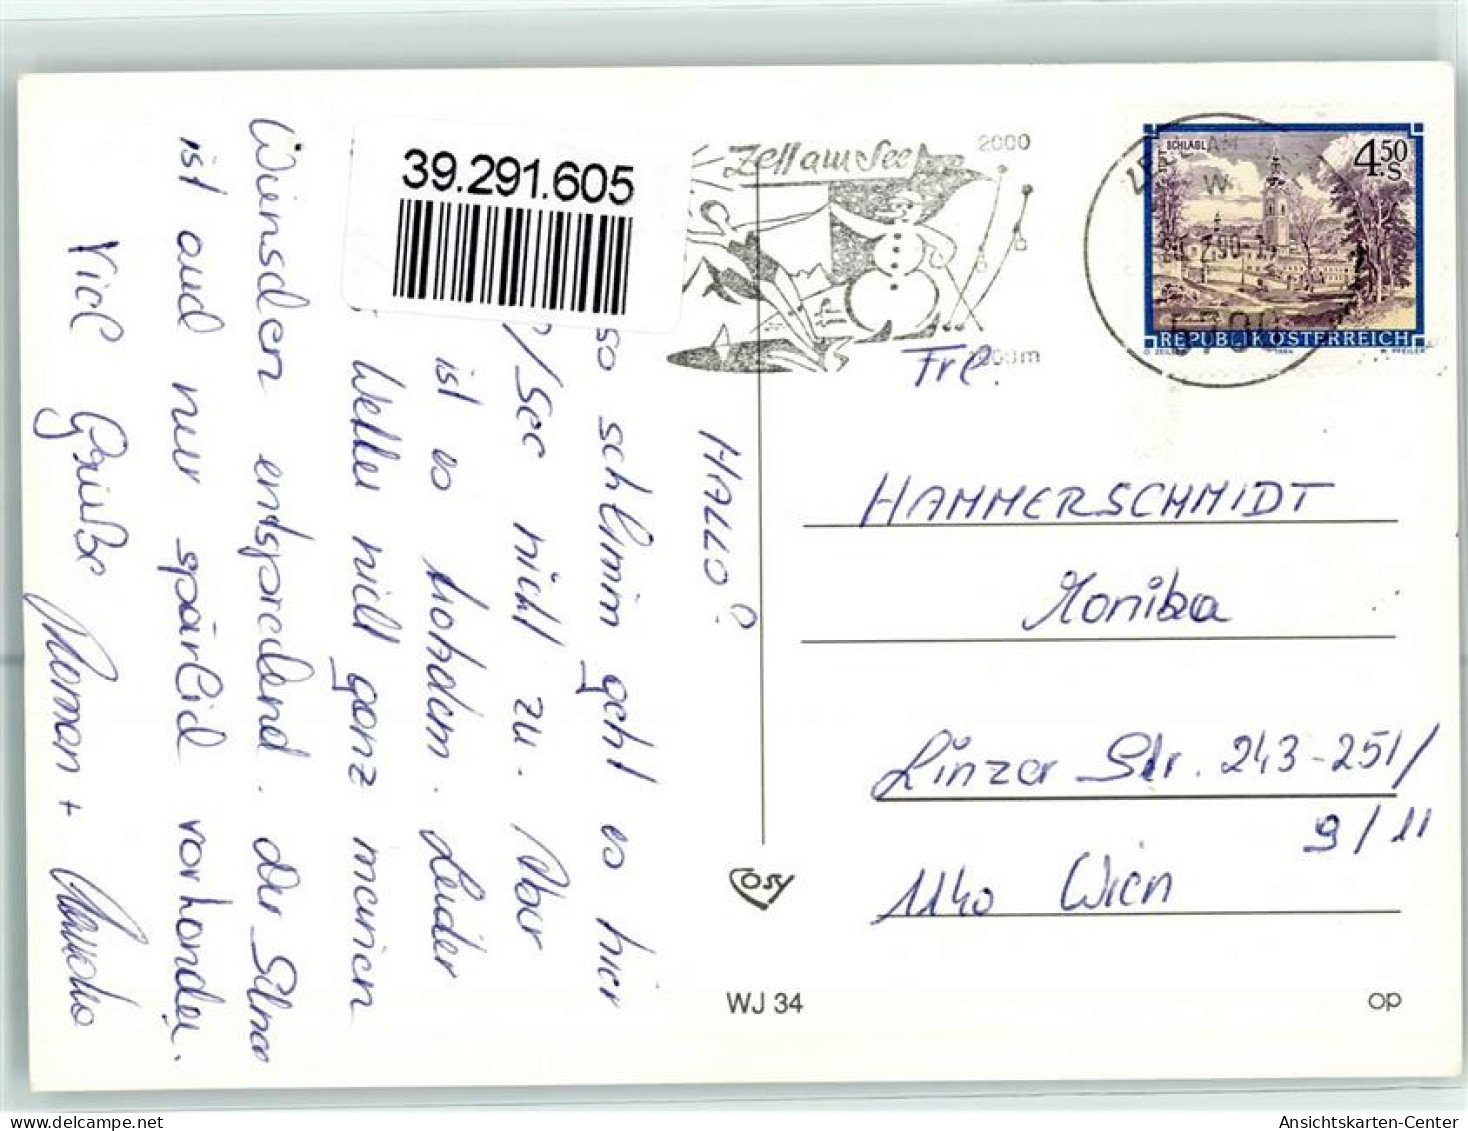 HALLO?
so schlimm geht es hier
/See nicht zu. Aber
ist es trotzdem. Leider
Wetter nicht ganz meinen
Wünschen entsprechend. Der Schnee
ist auch nur spärlich vorhanden.
Viele Grüße Roman +
39.291.605
Zell am See
2000
2000m
STIFT SCHLÄGL
4.50 S
REPUBLIK ÖSTERREICH
1984
W. PFEILER
5700
Frl.
HAMMERSCHMIDT
Monika
Linzer Str. 243-251/
9/11
1140 Wien
COSY
WJ 34
op
Ansichtskarten-Center